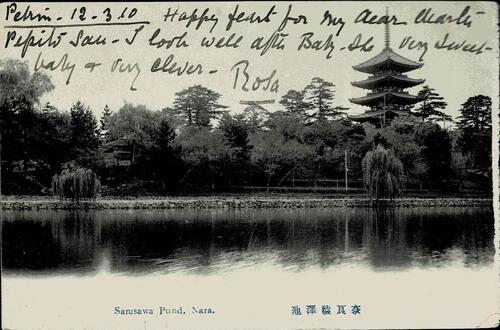 Pekin - 12-3.10 Happy feast for my dear
Pepito San - I look well after Baby - He very sweet
baby & very clever - Rosa
Sarusawa Pond, Nara.
池澤猿良奈